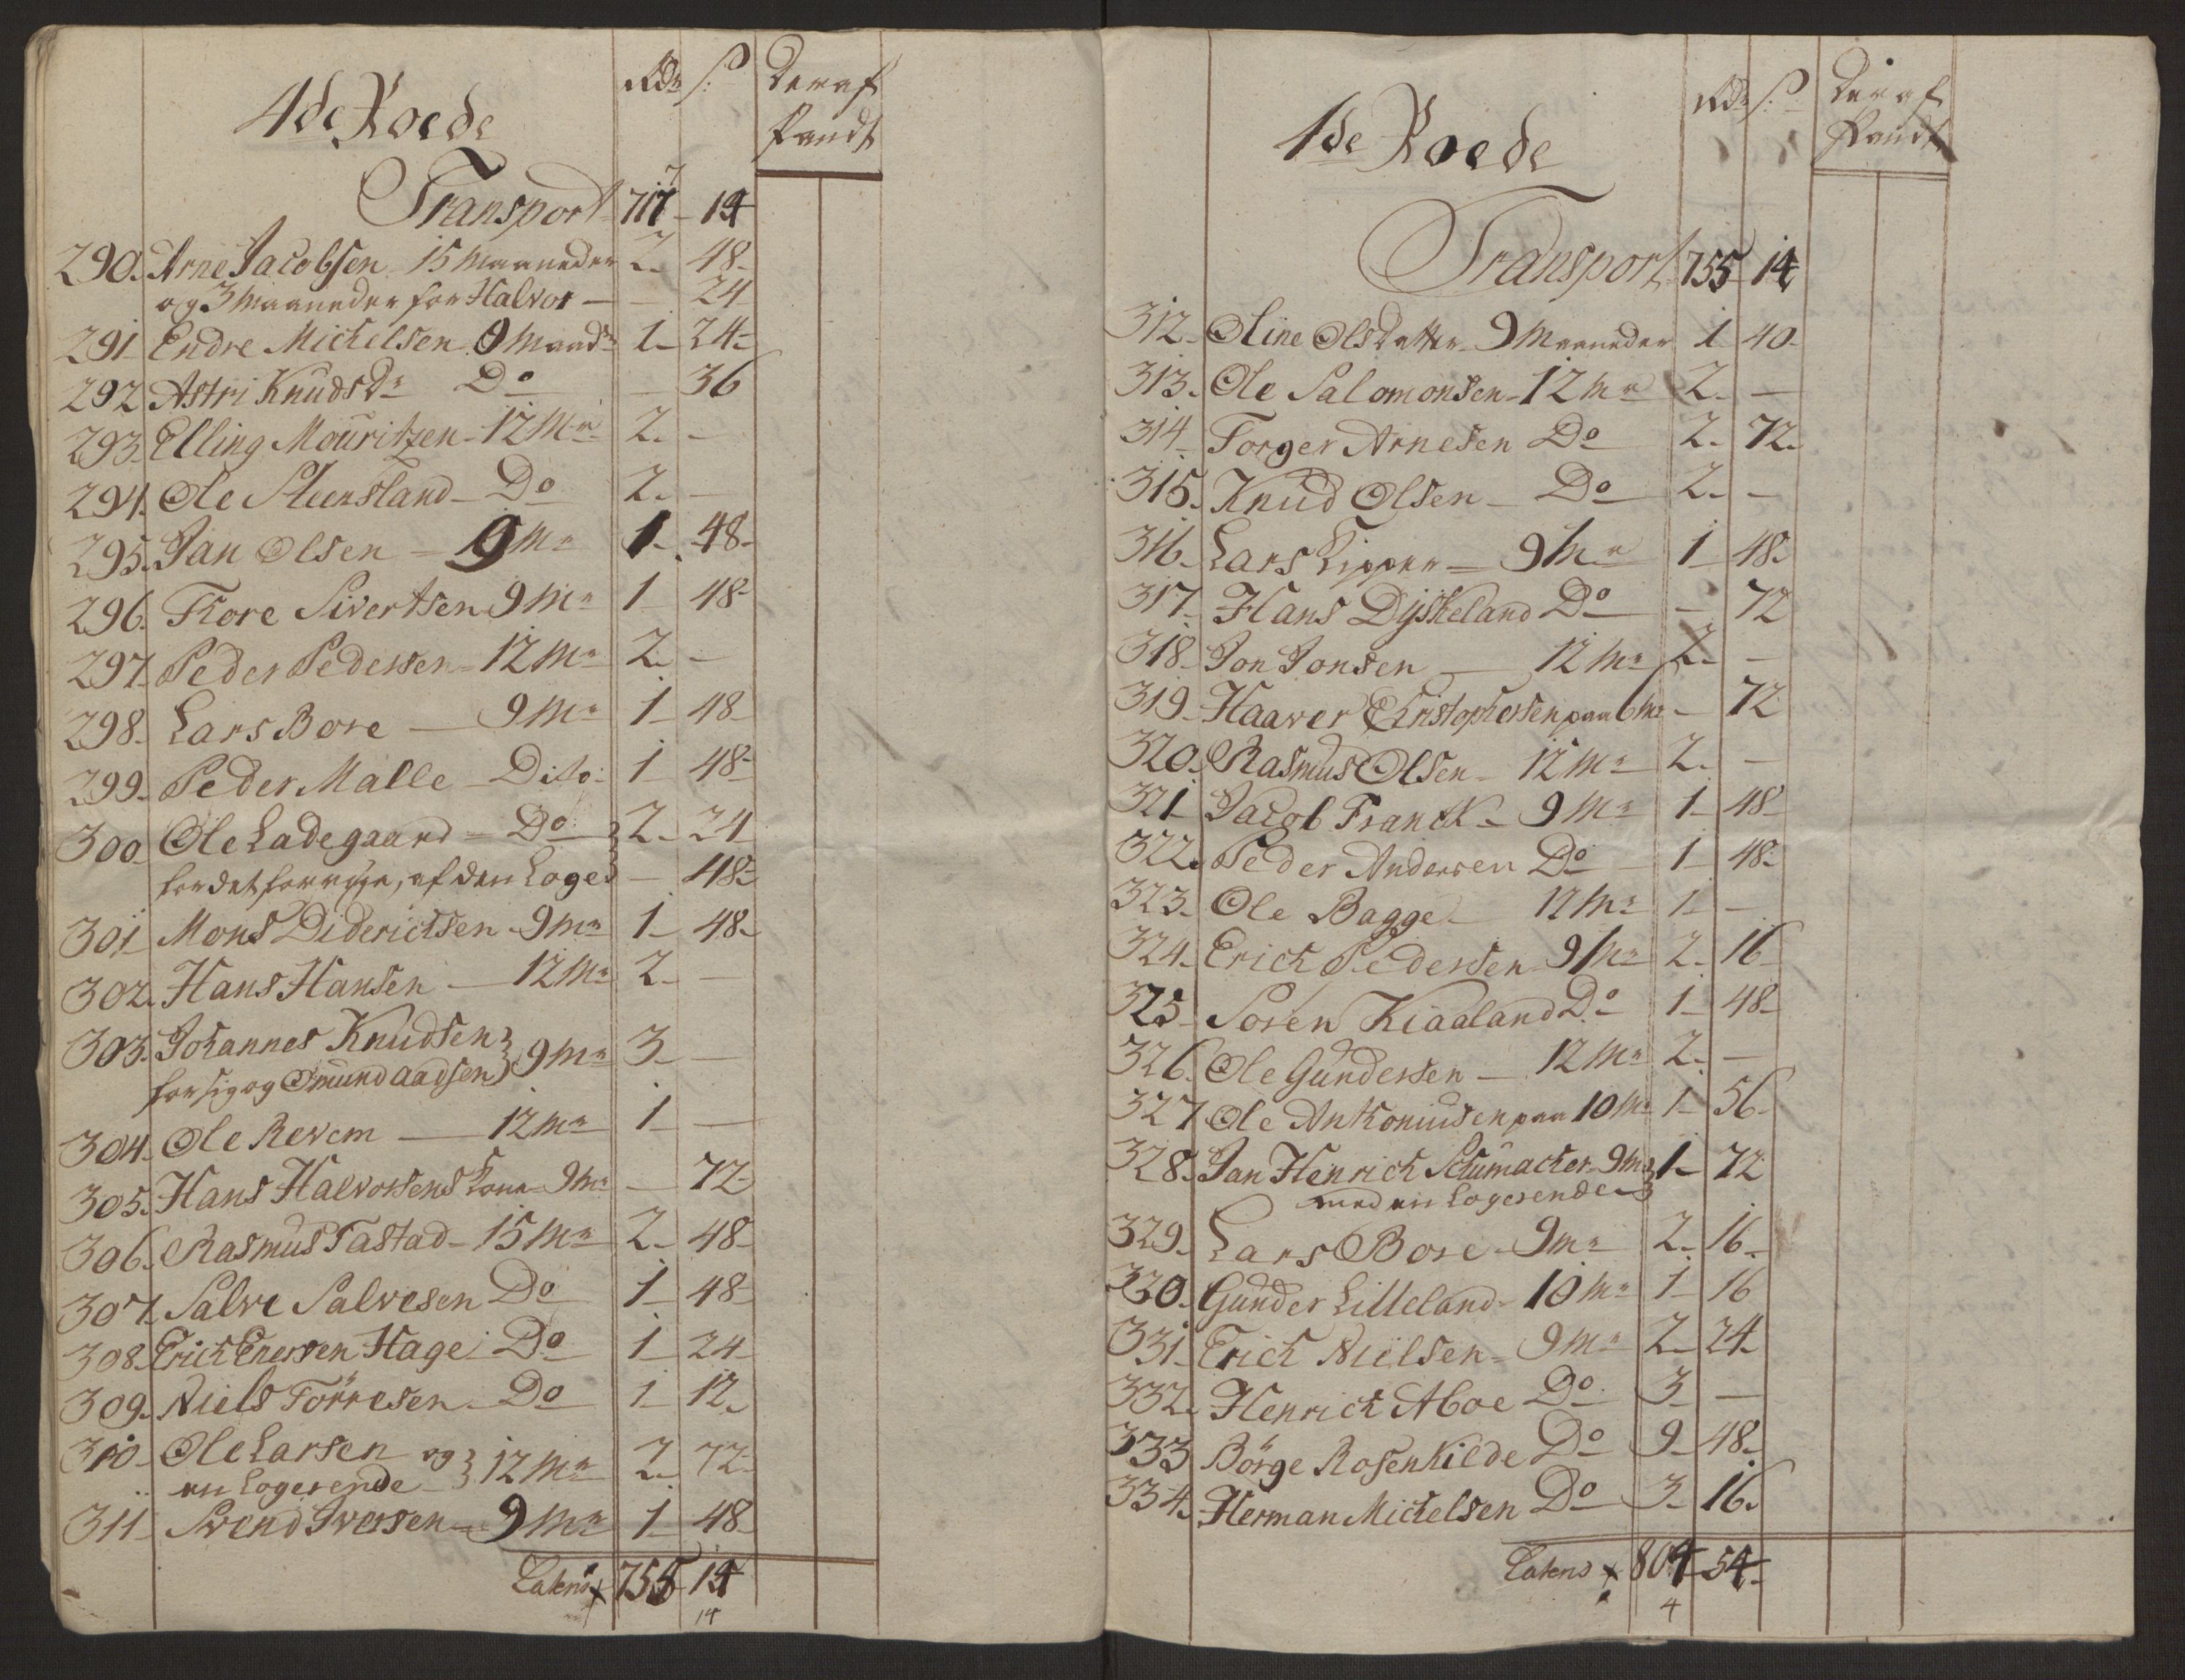 4de Roede Rdr S: Deraf
Pandt
Transport 717 - 14
290. Arne Jacobsen 15 Maaneder 2. 48-
og 3 Maaneder for Halvor - - 24
291 Endre Michelsen 9 Maadr 1- 24-
292 Astri Knudsdr Do - 36
293. Elling Mouritzen - 12 Mr 2. -
294. Ole Steensland - Do 2. -
295. Jan Olsen - 9 Mr 1. 48-
296. Tore Sivertsen 9 Mr 1 48-
297. Peder Pedersen - 12 Mr 2. -
298. Lars Bore - 9 Mr 1 48
299. Peder Malle - Dito: 1 48-
300 Ole Ladegaard - Do 2. 24
for det forrige, af den Loges - 48-
301 Mons Diderichsen 9 Mr 1 48-
302. Hans Hansen - 12 Mr 2. -
303. Johannes Knudsen
for sig og Omund Aadsen 9 Mr 3 -
304. Ole Revem - 12 Mr 1 -
305. Hans Halvorsens Kone 9 Mr - 72-
306. Rasmus Tastad - 15 Mr 2. 48-
307. Salve Salvesen Do 1 48-
308. Erich Enersen Hage Do 1 24
309. Niels Törresen Do 1 12
310 Ole Larsen og
en Logerende 12 Mr 2. 72-
311 Svend Iversen - 9 Mr 1 48
Latens 755 14
14
4de Roede Rdr S: Deraf
Pandt
Transport 755 14
312. Aline Olsdatter 9 Maaneder 1 40-
313. Ole Salomonsen - 12 Mr 2. -
314 Torger Arnesen Do 2. 72.
315. Knud Olsen - Do 2. -
316. Lars Kipper - 9 Mr 1 48.
317. Hans Dyskeland Do - 72
318. Jon Jonsen - 12 Mr 2. -
319. Haaver Christophersen paa 6 Mr - 72
320. Rasmus Olsen - 12 Mr 2. -
321 Jacob Franck - 9 Mr 1 48-
322. Peder Andersen Do - 1 48-
323. Ole Bagge - 12 Mr 1 -
324. Erich Pedersen 9 Mr 2. 16
325 Soren Kiaaland Do 1 48-
326. Ole Gundersen - 12 Mr 2. -
327. Ole Antoniusen paa 10 Mr 1 56-
328. Jan Henrich Schumacher 9 Mr 1 72
med en Logerende
329. Lars Bore - 9 Mr 2. 16-
330. Gunder Lilleland - 10 Mr 1 16
331. Erich Nielsen - 9 Mr 2 24
332. Henrich Aboe Do 3 -
333 Börge Rosenkilde Do 9 48-
334. Herman Michelsen Do 3 16.
Latens 804 54-
4